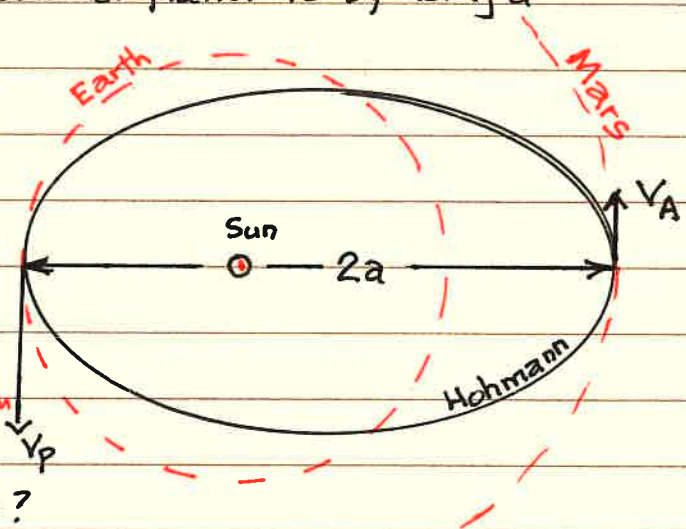 Earth
Mars
V_A
Sun
2a
Hohmann
V_P
?